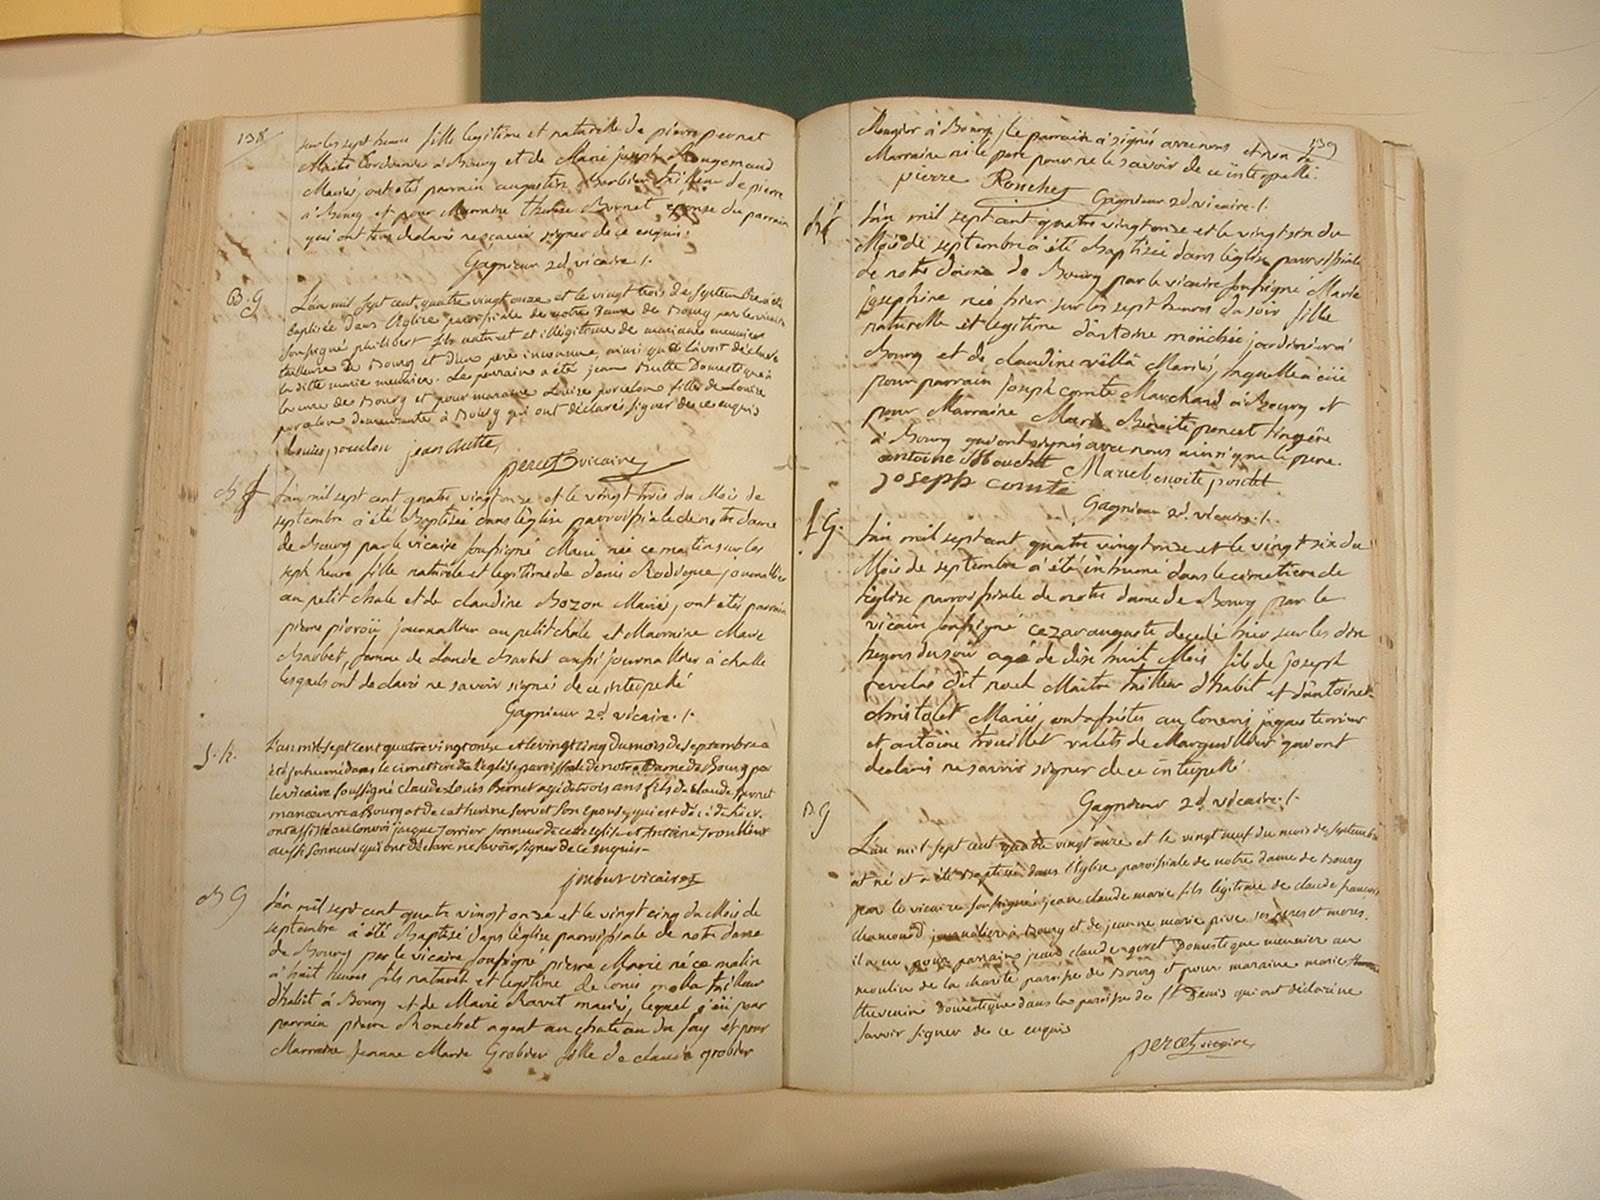 138
sur les sept heures fille legitime et naturelle de pierre pernet
Maitre Cordonier à Bourg et de Marie joseph Rougemand
Mariés, ont etés parrain augustin Barbier tailleur de pierre
à Bourg et pour Marraine therese Bornet epouse du parrain
qui ont tous declarés ne scavoir signer de ce enquis.
Gagnieur 2d. vicaire ./.
B. G
L'an mil sept cent quatre vingt onze et le vingt trois de septembre a été
baptisée dans l'église paroissiale de notre dame de Bourg par le vicaire
soussigné philibert fils naturel et illégitime de mariane meunier
tailleuse de Bourg et d'un pere inconnue, ainsi que l'avoit déclaré
la ditte marie meunier. Le parrain a été jean Butte Domestique à
la cure de Bourg et pour maraine Louise porcelon fille de Louise
porcelon demeurante à Bourg qui ont déclarés signer de ce enquis
jean Butte,
percet vicaire
B G
L'an mil sept cent quatre vingt onze et le vingt trois du Mois de
septembre à été Baptisée dans l'église parroissiale de notre dame
de Bourg par le vicaire soussigné Marie née ce matin sur les
sept heures fille naturele et legitime de denis Roddegue journallier
au petit chale et de claudine Bozon Mariés, ont etés parrain
pierre pioroü journallier au petit chale et Marraine Marie
Barbet, femme de Claude Barbet aussi journallier à challe
Lesquels ont declarés ne savoir signés de ce interpellé
Gagnieur 2d. vicaire ./.
S. R.
L'an mil sept cent quatre vingt onze et le vingt cinq du mois de septembre a
été inhumé dans le cimetière de l'eglise paroissiale de notre Dame de Bourg par
le vicaire soussigné claude Louis Bernet agé de trois ans fils de Claude Bernet
manœuvre à Bourg et de catherine servet son Epouse, qui est décédé hier
ont assisté au convoi jacque Terrier sonneur de cette eglise et Antoine Trouillet
aussi sonneur qui ont déclaré ne savoir signer de ce enquis
joubert vicaire
B G
L'an mil sept cent quatre vingt onze et le vingt cinq du Mois de
septembre à été Baptisé dans l'église parroissiale de notre dame
de Bourg par le vicaire soussigné pierre Marie né ce matin
à huit heures fils naturel et legitime de Louis molla tailleur
d'habit à Bourg et de Marie Ravet mariés, lequel à eü pour
parrain pierre Ronchet agent au chateau du fay et pour
Marraine jeanne Marie Grobier fille de claude grobier
139
Meugier à Bourg, le parrain à signés avec nous et non la
Marraine ni le pere pour ne le savoir de ce interpellé.
pierre Ronchet
Gagnieur 2d. vicaire ./.
L'an mil sept cent quatre vingt onze et le vingt six du
Mois de septembre à été Baptisée dans l'église parroissiale
de notre dame de Bourg par le vicaire soussigné Marie
josephine née hier sur les sept heures du soir fille
naturelle et legitime d'antoine mouchet jardinier à
Bourg et de claudine vella Mariés, laquelle à eüe
pour parrain joseph comte Marchand à Bourg et
pour Marraine Marie Benoite poncet lingere
à Bourg qui ont signés avec nous ainsi que le pere.
antoine Mouchet Marie benoite poncet
joseph comte
Gagnieur 2d. vicaire ./.
S G.
L'an mil sept cent quatre vingt onze et le vingt six du
Mois de septembre à été inhumé dans le cimetiere de
l'église parroissiale de notre dame de Bourg par le
vicaire soussigné cezar auguste decedé hier sur les dix
heures du soir agé de dix huit Mois fils de joseph
revelas dit noel Maitre tailleur d'habit et d'antoinette
christolet Mariés, ont assistés au convoi jaques terrier
et antoine trouillet valets de Marguillier qui ont
declarés ne savoir signer de ce interpellé
Gagnieur 2d. vicaire ./.
B G
L'an mil sept cent quatre vingt onze et le vingt neuf du mois de septembre
est né et a été baptisé dans l'Eglise paroissiale de notre dame de Bourg
par le vicaire soussigné jean claude marie fils légitime de claude françois
chamoud journalier à Bourg et de jeanne marie pive ses peres et meres.
il a eu pour parrain jean claude goret Domestique meunier au
moulin de la charité paroisse de Bourg et pour maraine marie
thevenin domestique dans la paroisse de St Denis qui ont déclaré ne
savoir signer de ce enquis
percet vicaire